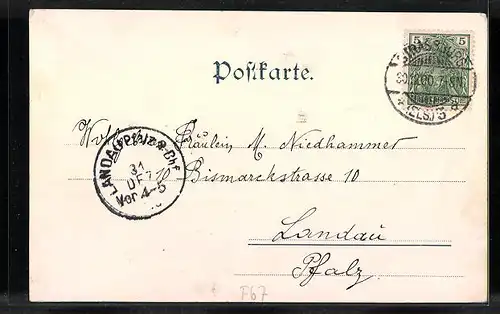 5 5
STRASSBURG
Postkarte.
30.12.00.7-8N.
*(ELS.)3*
Fräulein M. Niedhammer
LANDAU (PFALZ) 2. Bhf
31
DEZ
Vor. 4-5
Bismarckstrasse 10
Landau
Pfalz
F67